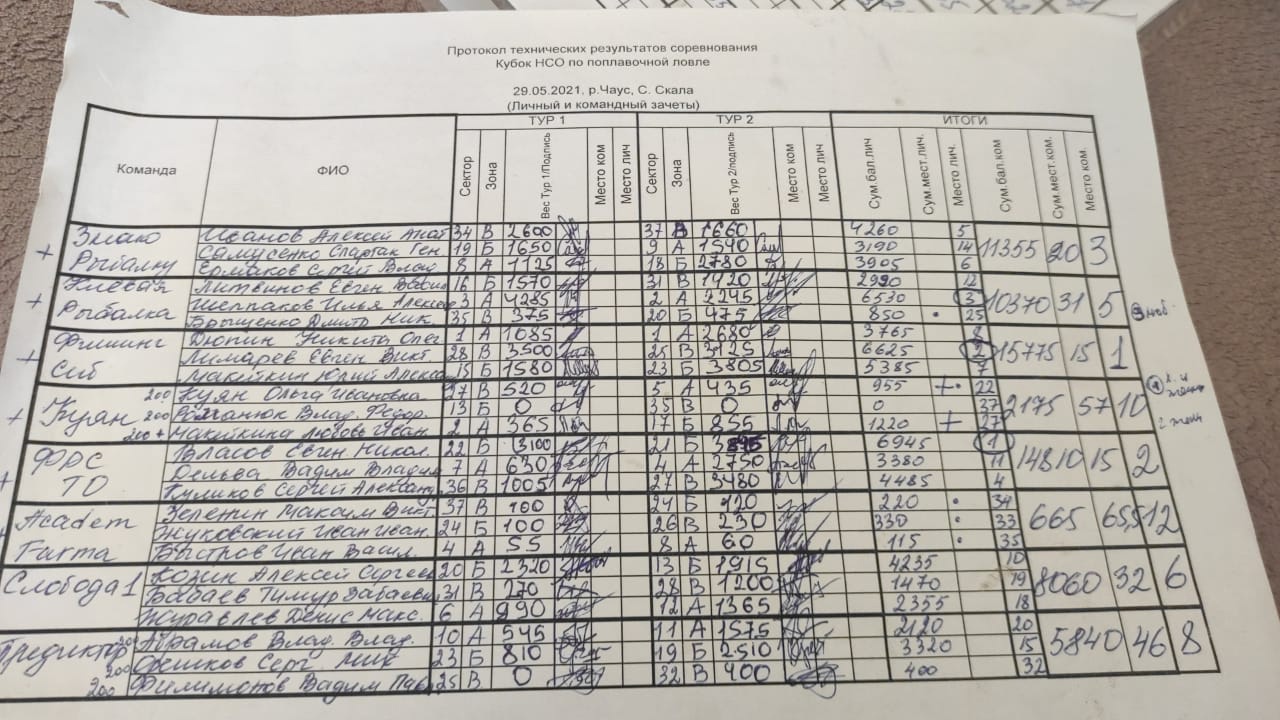 Протокол технических результатов соревнования
Кубок НСО по поплавочной ловле
29.05.2021. р.Чаус, С. Скала
(Личный и командный зачеты)
ТУР 1 ТУР 2 ИТОГИ
Команда ФИО Сектор Зона Вес Тур 1/Подпись Место ком Место лич Сектор Зона Вес Тур 2/подпись Место ком Место лич Сум.бал.лич Сум.мест.лич. Место лич. Сум.бал.ком Сум.мест.ком. Место ком.
Иванов Алексей Анат 34 В 2600 37 В 1660 4260 5
+ Рыбалку Самусенко Спартак Ген. 19 Б 1650 9 А 1540 3190 14 11355 20 3
Ермаков Сергей Влад 8 А 1125 18 Б 2780 3905 6
Клевая Литвинов Евген 16 Б 1570 31 В 1420 2990 12
+ Рыбалка Илья Алексе 3 А 4285 2 А 2245 6530 3 10370 31 5
Дмитр Ник. 35 В 375 20 Б 475 850 . 25
Фишинг Дюпин Никита Олег 1 А 1085 1 А 2680 3765 8
+ Сиб Лимарев Евген Викт 28 В 3500 25 В 3125 6625 2 15775 15 1
Макейкин Юрий Алекса 15 Б 1580 23 Б 3805 5385 7
200 Куян Ольга Ивановна 27 В 520 5 А 435 955 +. 22
+ Куян 200 Влад. Федор. 13 Б 0 35 В 0 0 37 2175 57 10
200 + Макейкина Любовь Иван. 2 А 365 17 Б 855 1220 + 27
Власов Евген Никол. 22 Б 3100 21 Б 6945 1
+ ФРС ТО Дельва Вадим Влади 7 А 630 4 А 2750 3380 11 14810 15 2
Куликов Сергей Александ 36 В 1005 27 В 3480 4485 4
Зеленин Максим Викт 37 В 100 24 Б 120 220 . 34
Academ Жуковский Иван Иван. 24 Б 100 26 В 230 330 . 33 665 12
Быстров Иван Васил. 4 А 55 8 А 60 115 . 35
Козин Алексей Сергее 20 Б 2320 13 Б 1915 4235 10
Слобода 1 Бабаев Тимур 31 В 270 28 В 1200 1470 19 8060 32 6
Журавлев Денис Макс. 6 А 990 12 А 1365 2355 18
Абрамов Влад. Влад. 10 А 545 11 А 1575 2120 20
Предиктор 200 Серг. Мих 23 Б 810 19 Б 2510 3320 15 5840 46 8
200 Филимонов Вадим Пав 25 В 0 32 В 400 400 32